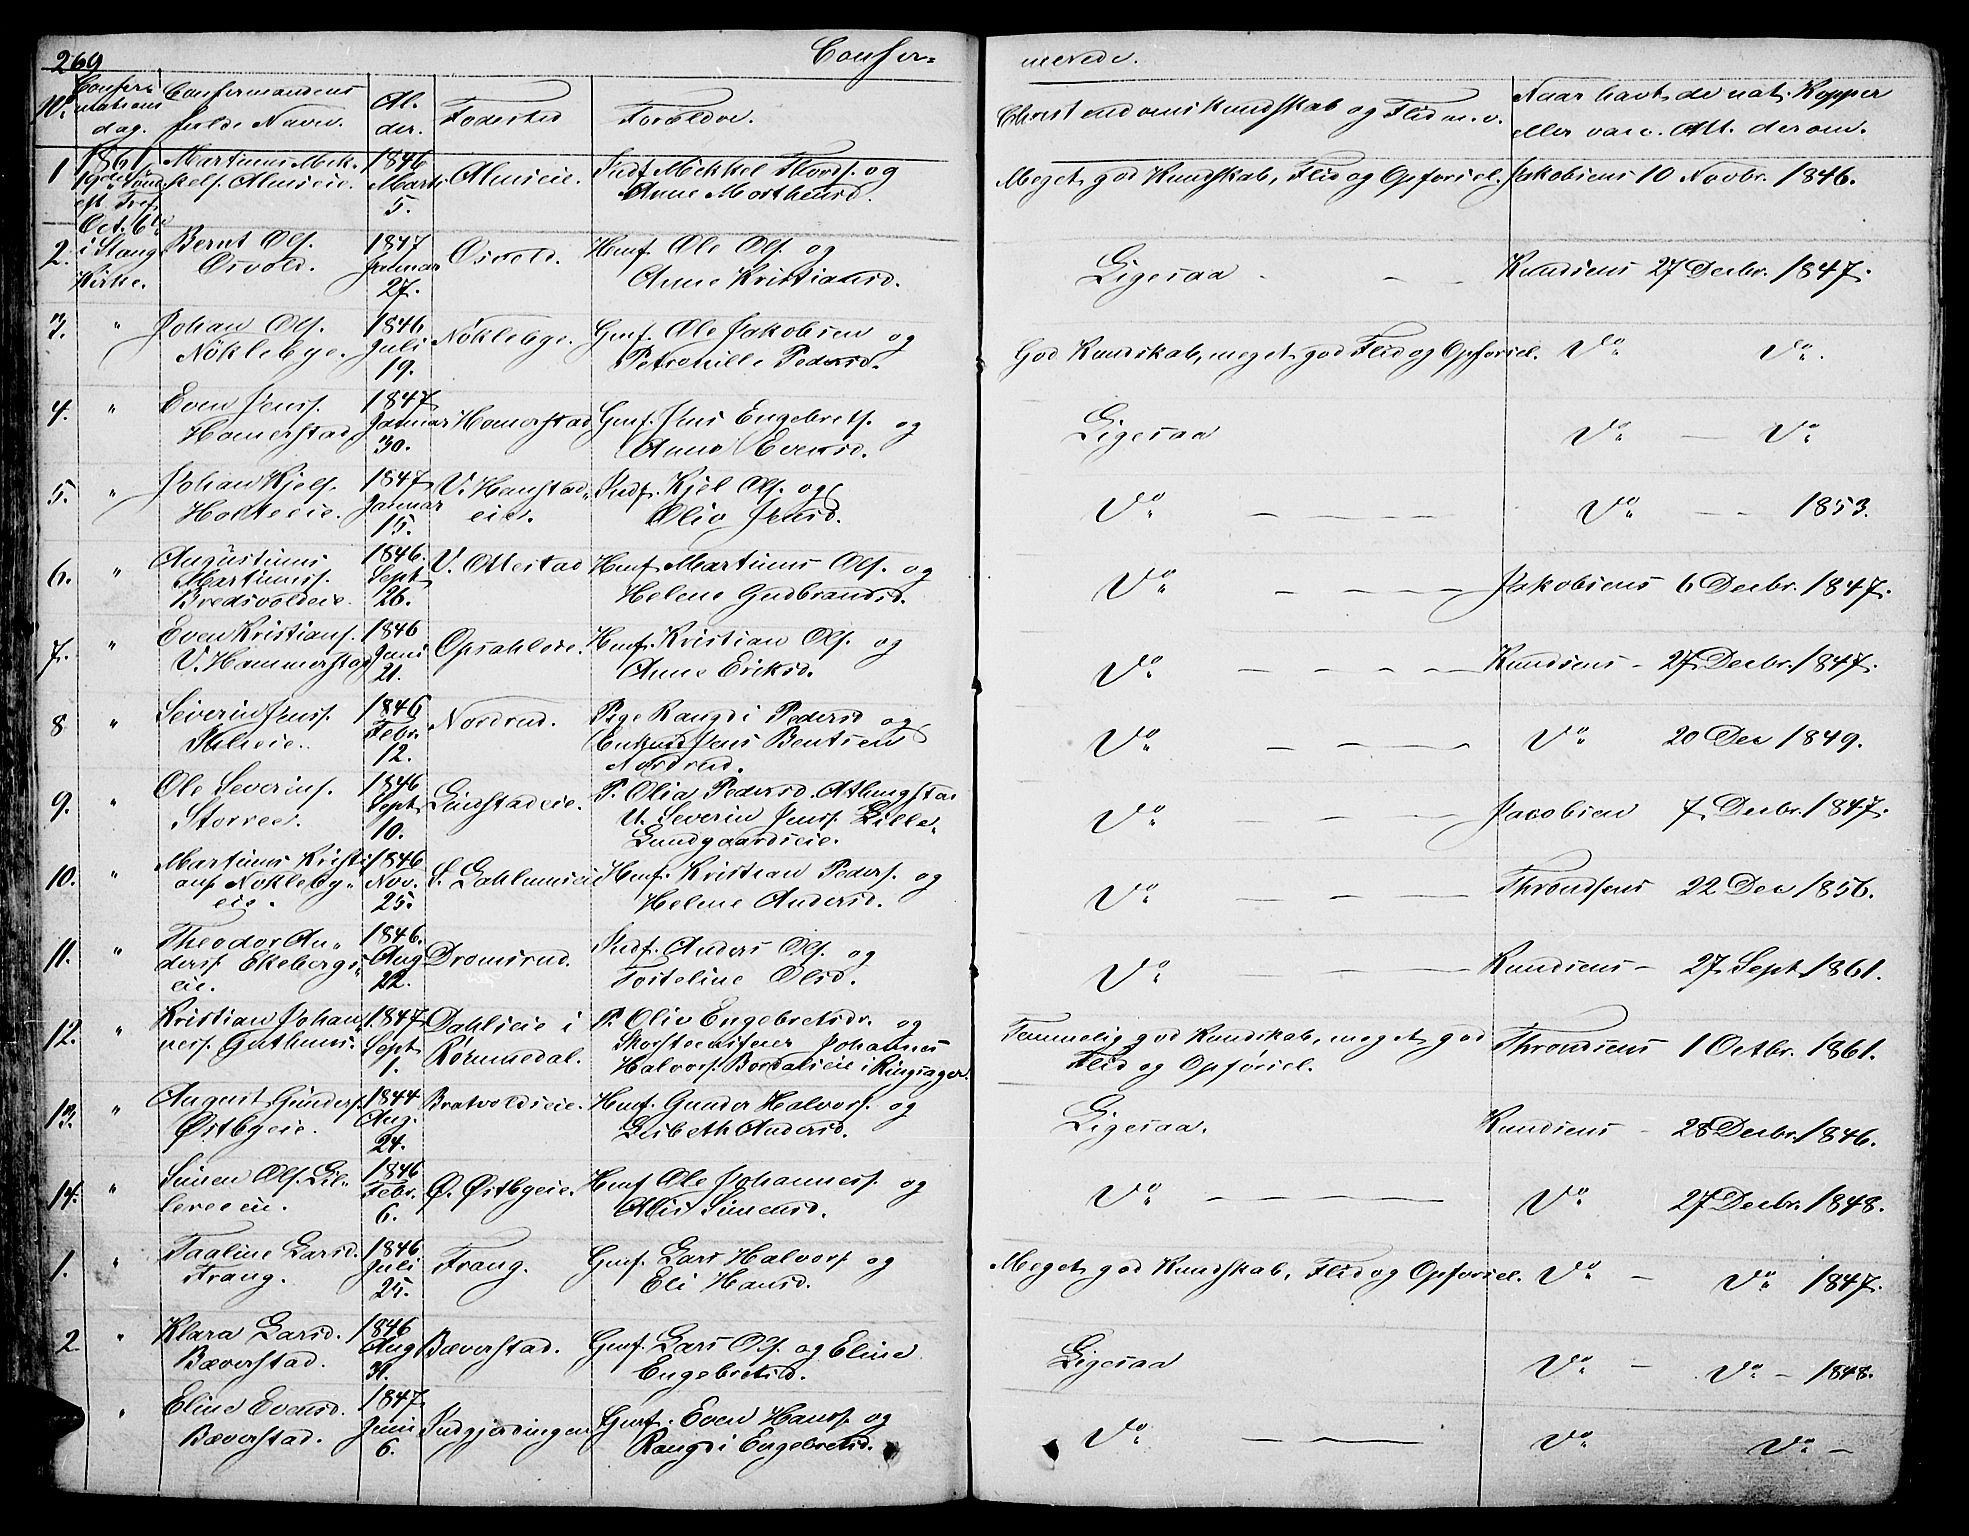 269
Confir=
merede.
No.
Confir=
mations
dag.
Confirmandens
fulde Navn.
Al-
der.
Fødested
Forældre.
Christendomskundskab og Flid m. v.
Naar havt de nat. Kopper
eller vacc. Att. derom.
1
1861
Oct. 6te
Martinus Mik-
kels. Almieie.
1846
Marts
5.
Almieie.
Indf. Mikkel Thords. og
Anne Morthensd.
Meget god Kundskab, Flid og Opførsel.
Jakobsens 10 Novbr. 1846.
2.
i Stange
Kirke.
Bernt Ols.
Osvold.
1847
Januar
27.
Osvold.
Hmf. Ole Ols. og
Anne Kristiansd.
Ligesaa - -
Knudsens 27 Decbr. 1847.
3.
"
Johan Ols.
Nöklebye.
1846
Juli
19.
Nöklebye.
Gmf. Ole Jakobsen og
Petronille Pedersd.
God Kundskab, meget god Flid og Opførsel.
Do Do.
4.
"
Even Jenss.
Homerstad
1847
Januar
30.
Homerstad
Gmf. Jens Engebrets. og
Anne Evensd.
Ligesaa
Do — Do
5.
"
Johan Kjels.
Holteeie.
1847
Januar
15.
V. Honstad-
eie.
Indf. Kjel Ols. og
Oliv Jensd.
Do — — — —
Do - - 1853.
6.
"
Augustinus
Martinuss.
Bredsvoldeie.
1846.
Sept.
26.
V. Ottestad
Hmf. Martinus Ols. og
Helene Gudbrandsd.
Do — — — —
Jakobsens 6 Decbr. 1847.
7.
"
Even Kristians.
V. Hommerstad
1846
Juni
21.
Opsahleie.
Hmf. Kristian Ols. og
Anne Eriksd.
Do — — — —
Knudsens - 27 Decbr. 1847.
8
"
Severin Jenss.
1846
Febr.
12.
Nordrud.
Pige Rangdi Pedersd og
Enkmd Jens Bentsen
Nordrud.
Do — — — —
Do 20 Dec 1849.
9.
"
Ole Severins.
Storree.
1846
Sept.
10.
Lindstadeie.
P. Olia Pedersd.
U. Severin Jenss. Lille-
Lundgaardseie.
Do — — — —
Jacobsen 7 Decbr. 1847.
10.
"
Martinus Kristi-
ans Nokleby-
eie.
1846
Nov.
25.
Hmf. Kristian Peders. og
Helene Andersd.
Do — — — —
Throndsens 22 Dec 1856.
11.
"
Theodor An-
ders. Ekebergs-
eie.
1846.
Aug
22.
Dromsrud.
Indf. Anders Ols. og
Torteline Olsd.
Do — —
Knudsens - 27 Sept. 1861.
12.
"
Kristian Johan-
ness. Guthuus.
1847.
Sept.
1.
Dahlseie i
Rommedal.
P. Oliv Engebretsdr. og
Johannes
Halvors. i Ringsager.
Temmelig god Kundskab, meget god
Flid og Opførsel.
Throndsens 1 Octbr. 1861.
13.
"
August Gunders.
Østbyeie.
1844
Aug.
24.
Bratvoldseie.
Hmf. Gunder Halvors. og
Lisbeth Andersd.
Ligesaa.
Knudsens - 28 Decbr. 1846.
14.
"
Simen Ols. Lil-
lereeeie.
1846
Febr.
6.
Ø. Østbyeie.
Hmf Ole Johanness. og
Alis Simensd.
Do — — — —
Do 27 Decbr. 1848.
1.
"
Taaline Larsd.
Frang.
1846.
Juli
25.
Frang.
Gmf. Lars Halvors. og
Eli Hansd.
Meget god Kundskab, Flid og Opførsel.
Do — Do 1847.
2
"
Klara Larsd.
Bæverstad.
1846
Aug
31.
Bæverstad.
Gmf. Lars Ols. og Eline
Engebretsd.
Ligesaa
Do — Do - 1848.
"
Eline Evensd.
Bæverstad.
1847
Juni
6.
Indgjerdingen
Gmf. Even Hanss. og
Rangdi Engebretsd.
Do — — —
Do Do —